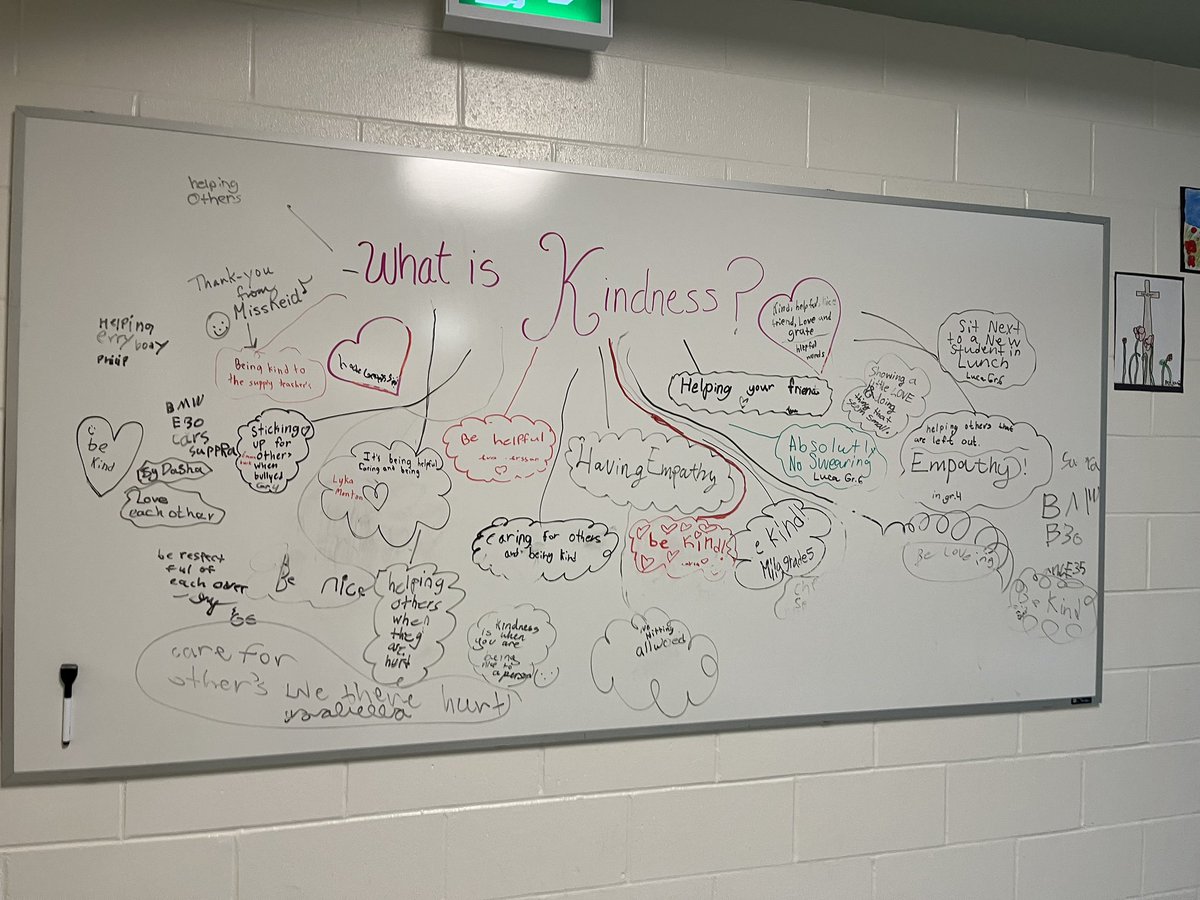 What is Kindness?
helping
Others
Thank-you
from
Miss Reid
Being kind to
the supply teacher's
HELPING
erry body
PHILIP
be
kind
BMW
E30
cars
SUPPRA
By Dasha
Love
each other
Sticking
up for
others
when
bullyed
It's being helpful
Caring and being
Lyka
Be helpful
Having Empathy
Helping your friend
Kind, helpful, Nice
friend, Love and
grate
helpful
Sit Next
to a New
Student in
Lunch
Luca Gr.6
Showing a
little LOVE
& doing
thing that
seem small
Absolutly
No Swearing
Luca Gr.6
helping others that
are left out.
Empathy!
in gr.4
BMW
B30
Caring for others
and being kind
be kind!
e kind!
Mily grade 5
Be Loveing
E35
Be kind
be respect
ful of
each over
Be nice
helping
others
when
they
are
hurt
Kindness
is when
you are
being
nice to
a person
no
Hitting
allwoed
care for
other's we there hurt